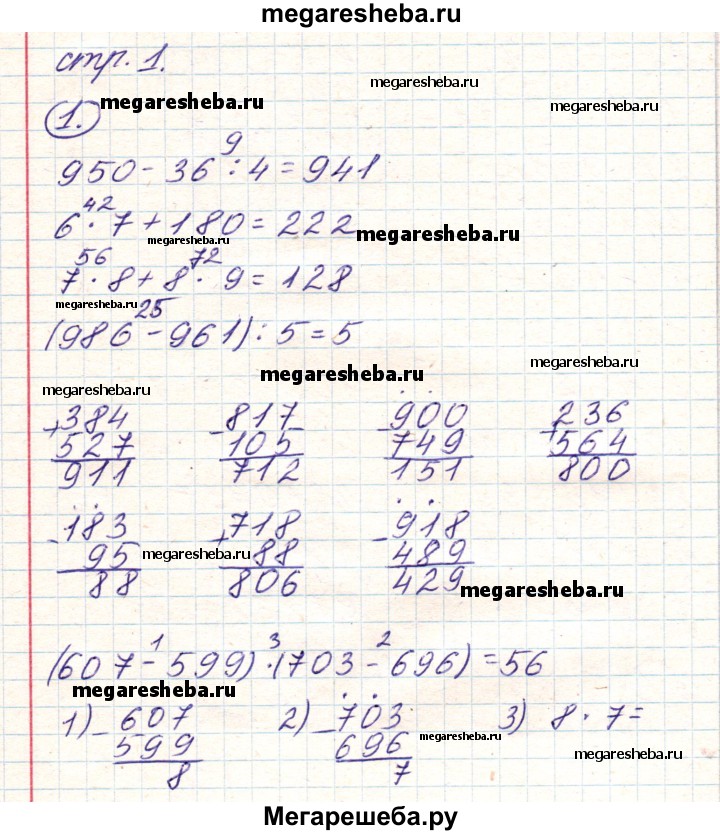 megaresheba.ru
стр. 1.
megaresheba.ru
megaresheba.ru
1. megaresheba.ru
9
950 - 36 : 4 = 941
42
6 · 7 + 180 = 222
megaresheba.ru megaresheba.ru
56 72
7 · 8 + 8 · 9 = 128
megaresheba.ru 25
(986 - 961) : 5 = 5
megaresheba.ru
megaresheba.ru
megaresheba.ru
+384 -817 -900 +236
527 105 749 564
911 712 151 800
-183 +718 -918
95 megaresheba.ru 88 489
88 806 429 megaresheba.ru
1 3 2
(607 - 599) · (703 - 696) = 56
megaresheba.ru
1) -607 2) -703 3) 8 · 7 =
599 696 megaresheba.ru
8 7 megaresheba.ru
Мегарешеба.ру